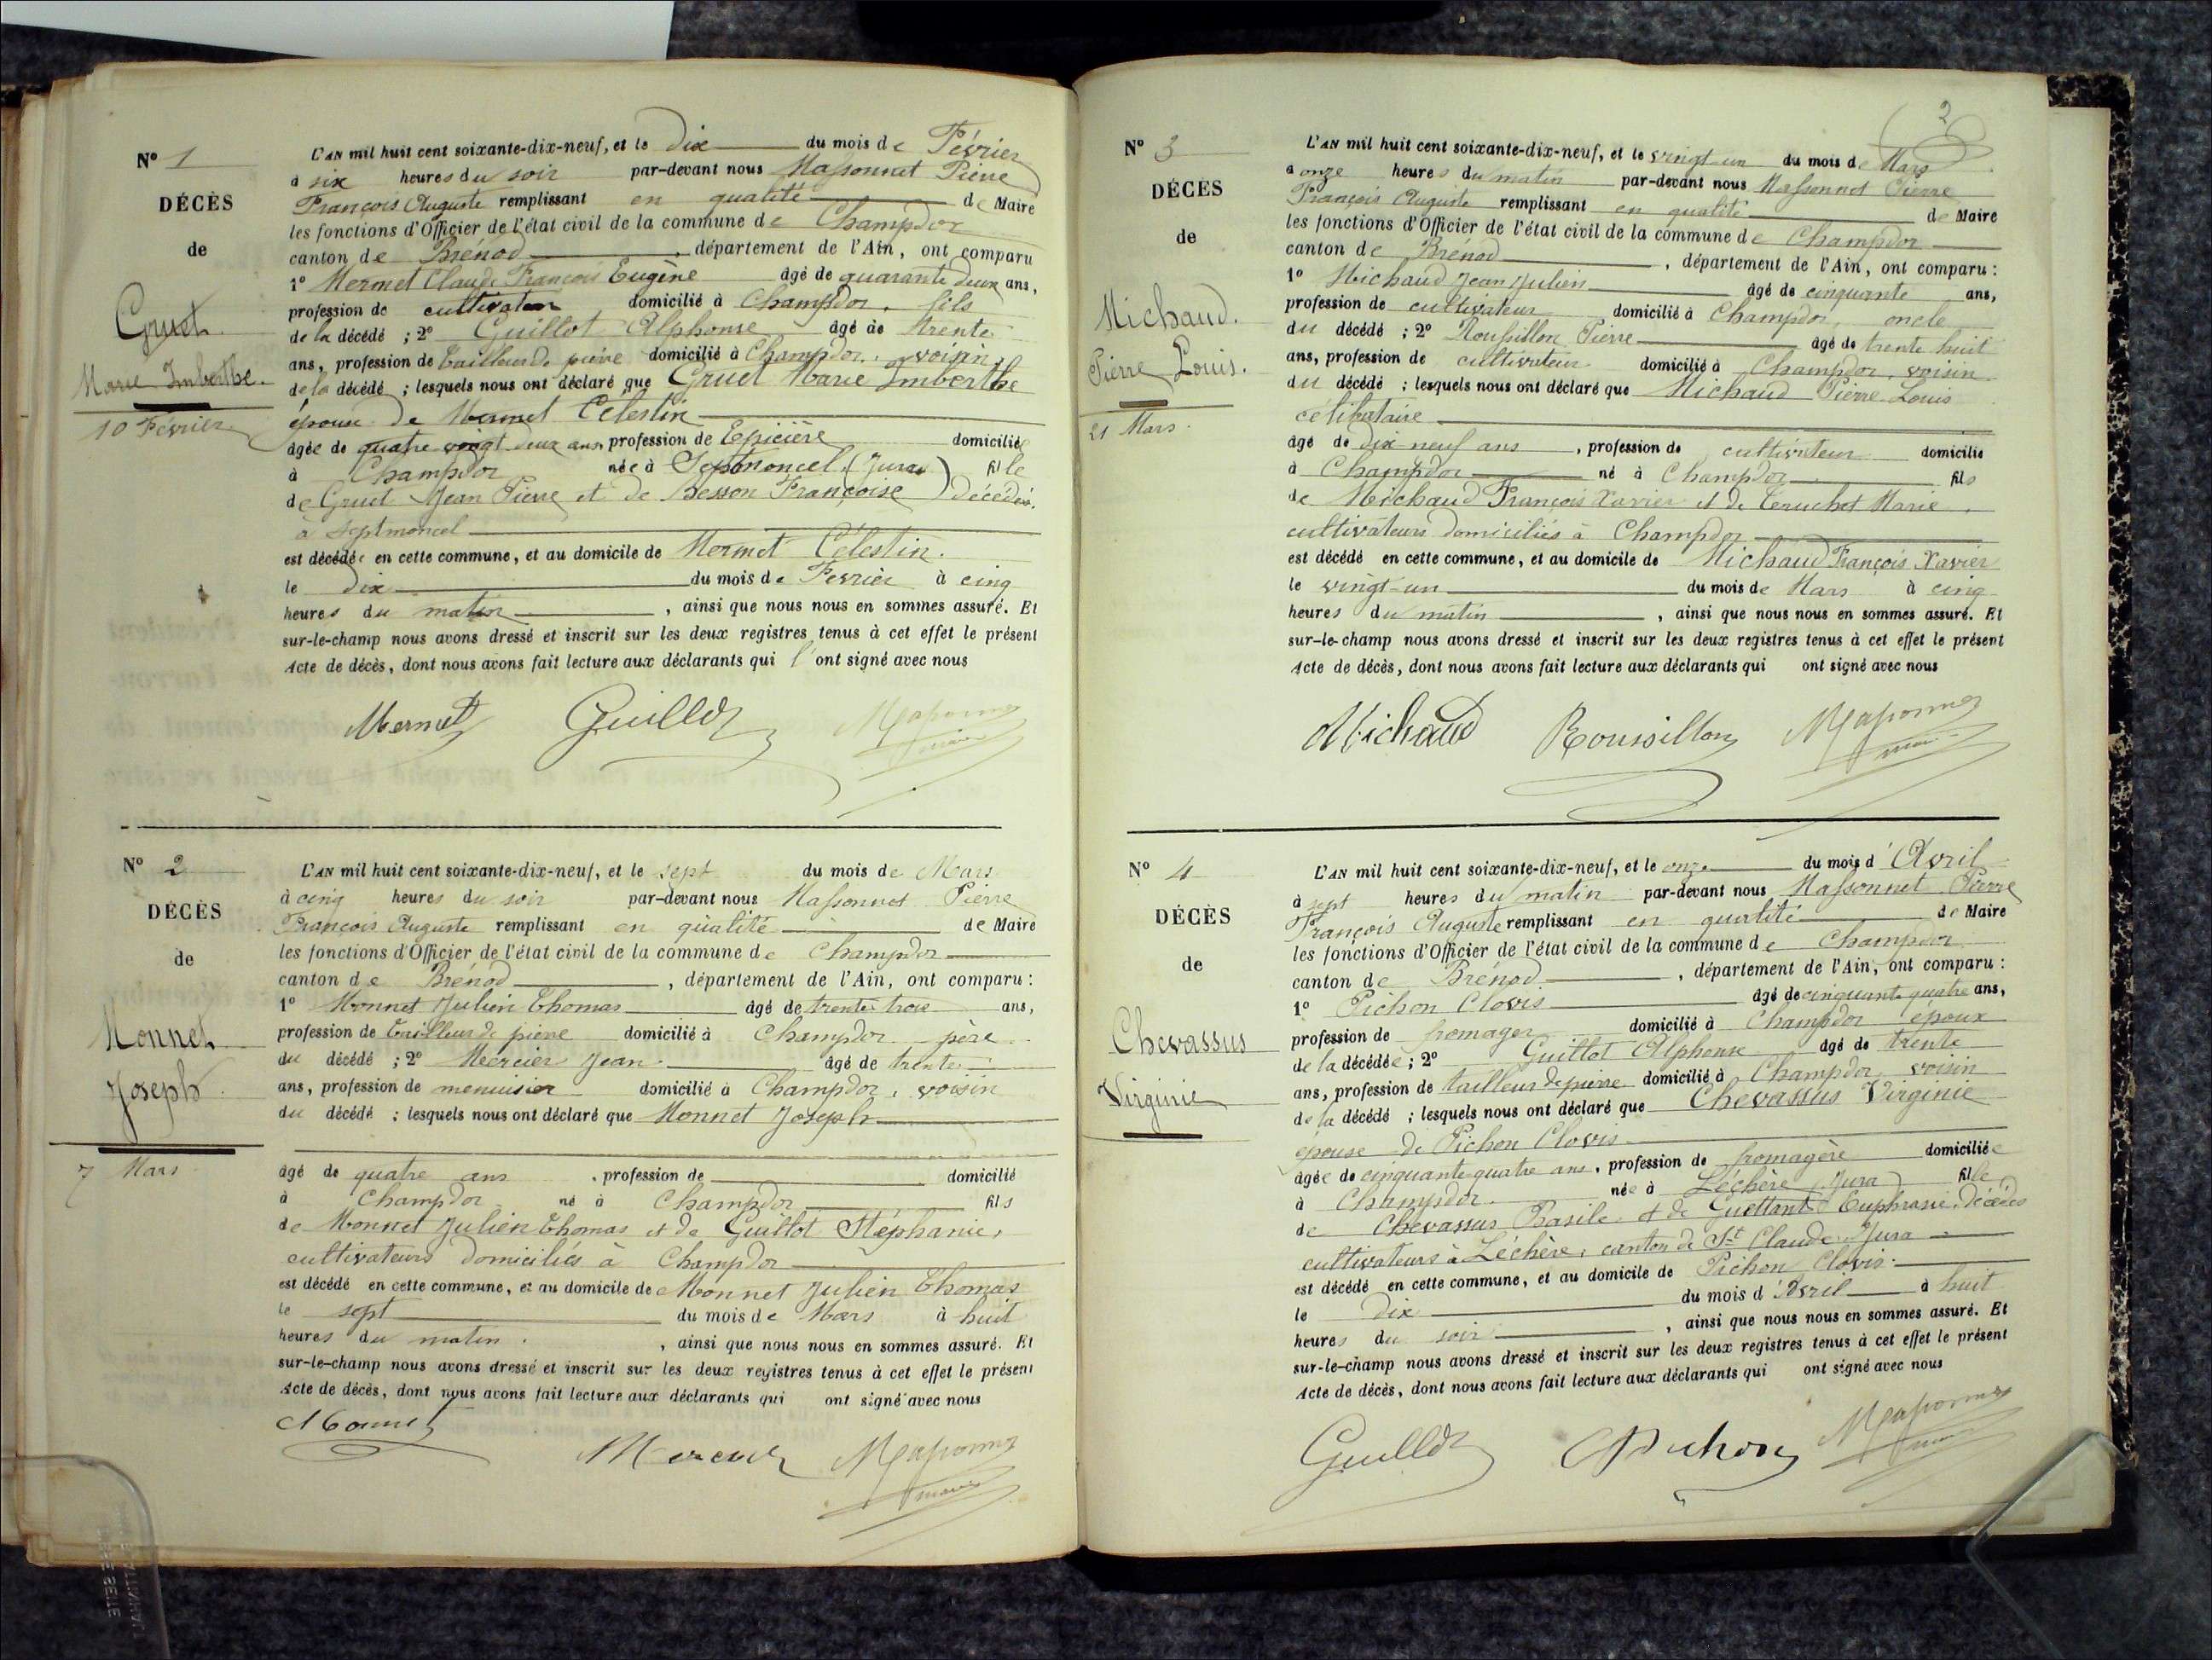 Nº 1
DÉCÈS
de
Gruet
Marie Imberthe.
10 Février
L'AN mil huit cent soixante-dix-neuf, et le dix du mois de Février
à six heures du soir par-devant nous Massonnet Pierre
François Auguste remplissant en qualité de Maire
les fonctions d'Officier de l'état civil de la commune de Champdor
canton de Brénod, département de l'Ain, ont comparu
1º Mermet Claude François Eugène âgé de quarante deux ans,
profession de cultivateur domicilié à Champdor, fils
de la décédé ; 2º Guillot Alphonse âgé de trente
ans, profession de tailleur de pierre domicilié à Champdor, voisin
de la décédé ; lesquels nous ont déclaré que Gruet Marie Imberthe
épouse de Mermet Célestin
âgée de quatre vingt deux ans, profession de Epicière domiciliée
à Champdor née à Septmoncel (Jura) fille
de Gruet Jean Pierre et de Besson Françoise décédés.
à Septmoncel
est décédée en cette commune, et au domicile de Mermet Célestin.
le dix du mois de Février à cinq
heures du matin, ainsi que nous nous en sommes assuré. Et
sur-le-champ nous avons dressé et inscrit sur les deux registres tenus à cet effet le présent
Acte de décès, dont nous avons fait lecture aux déclarants qui l'ont signé avec nous
Mermet Guillot Massonnet
maire
Nº 2
DÉCÈS
de
Monnet
Joseph
7 Mars
L'AN mil huit cent soixante-dix-neuf, et le sept du mois de Mars
à cinq heures du soir par-devant nous Massonnet Pierre
François Auguste remplissant en qualité de Maire
les fonctions d'Officier de l'état civil de la commune de Champdor
canton de Brénod, département de l'Ain, ont comparu :
1º Monnet Julien Thomas âgé de trente trois ans,
profession de tailleur de pierre domicilié à Champdor père
du décédé ; 2º Mercier Jean âgé de trente
ans, profession de menuisier domicilié à Champdor, voisin
du décédé ; lesquels nous ont déclaré que Monnet Joseph
âgé de quatre ans, profession de domicilié
à Champdor né à Champdor fils
de Monnet Julien Thomas et de Guillot Stéphanie,
cultivateurs domiciliés à Champdor
est décédé en cette commune, et au domicile de Monnet Julien Thomas
le sept du mois de Mars à huit
heures du matin, ainsi que nous nous en sommes assuré. Et
sur-le-champ nous avons dressé et inscrit sur les deux registres tenus à cet effet le présent
Acte de décès, dont nous avons fait lecture aux déclarants qui ont signé avec nous
Monnet
Mercier Massonnet
maire
2
Nº 3
DÉCÈS
de
Michaud.
Pierre Louis.
21 Mars.
L'AN mil huit cent soixante-dix-neuf, et le vingt un du mois de Mars
à onze heures du matin par-devant nous Massonnet Pierre
François Auguste remplissant en qualité de Maire
les fonctions d'Officier de l'état civil de la commune de Champdor
canton de Brénod, département de l'Ain, ont comparu :
1º Michaud Jean Julien âgé de cinquante ans,
profession de cultivateur domicilié à Champdor, oncle
du décédé ; 2º Roussillon Pierre âgé de trente huit
ans, profession de cultivateur domicilié à Champdor, voisin
du décédé ; lesquels nous ont déclaré que Michaud Pierre Louis
célibataire
âgé de dix neuf ans, profession de cultivateur domicilié
à Champdor né à Champdor fils
de Michaud François Xavier et de Teruchet Marie,
cultivateurs domiciliés à Champdor
est décédé en cette commune, et au domicile de Michaud François Xavier
le vingt-un du mois de Mars à cinq
heures du matin, ainsi que nous nous en sommes assuré. Et
sur-le-champ nous avons dressé et inscrit sur les deux registres tenus à cet effet le présent
Acte de décès, dont nous avons fait lecture aux déclarants qui ont signé avec nous
Michaud Roussillon Massonnet
maire
Nº 4
DÉCÈS
de
Chevassus
Virginie
L'AN mil huit cent soixante-dix-neuf, et le onze du mois d'Avril
à sept heures du matin par-devant nous Massonnet Pierre
François Auguste remplissant en qualité de Maire
les fonctions d'Officier de l'état civil de la commune de Champdor
canton de Brénod, département de l'Ain, ont comparu :
1º Pichon Clovis âgé de cinquante quatre ans,
profession de fromager domicilié à Champdor époux
de la décédée ; 2º Guillot Alphonse âgé de trente
ans, profession de tailleur de pierre domicilié à Champdor voisin
de la décédé ; lesquels nous ont déclaré que Chevassus Virginie
épouse de Pichon Clovis
âgée de cinquante quatre ans, profession de fromagère domiciliée
à Champdor. née à Léchère, Jura fille
de Chevassus Basile et de Guettant Euphrasie, décédés
cultivateurs à Léchère, canton de St Claude Jura
est décédé en cette commune, et au domicile de Pichon Clovis.
le dix du mois d'Avril à huit
heures du soir, ainsi que nous nous en sommes assuré. Et
sur-le-champ nous avons dressé et inscrit sur les deux registres tenus à cet effet le présent
Acte de décès, dont nous avons fait lecture aux déclarants qui ont signé avec nous
Guillot Pichon Massonnet
maire